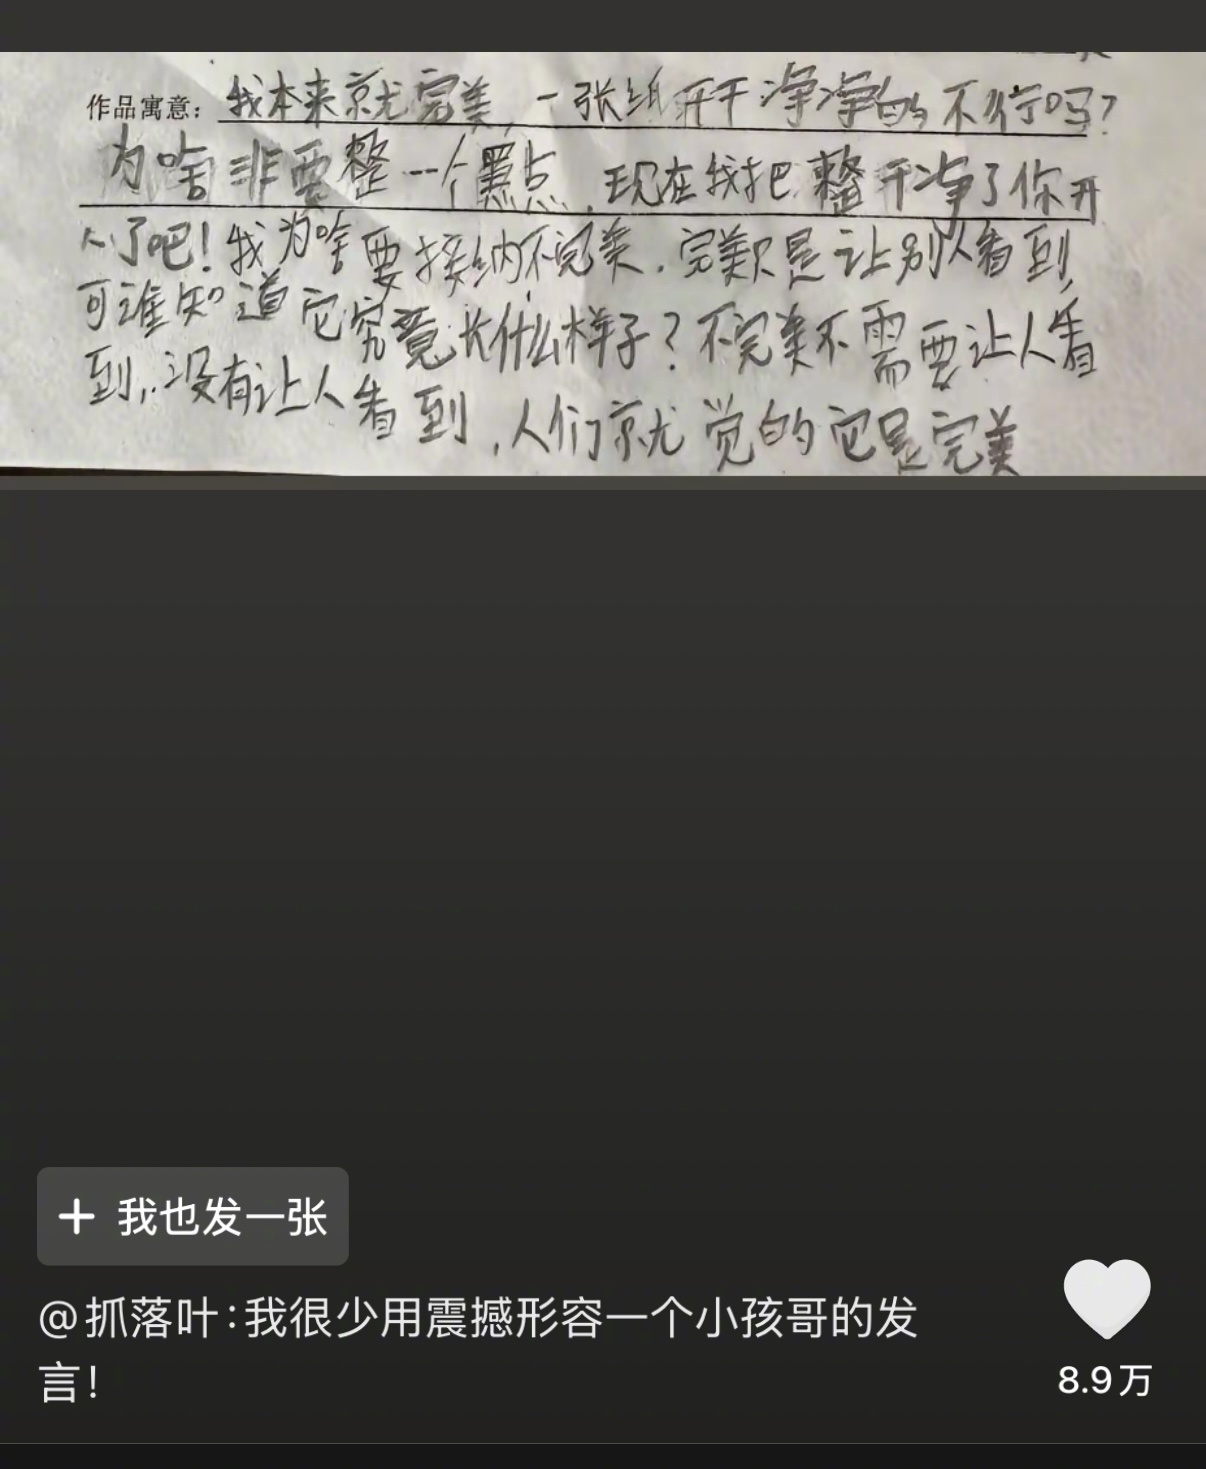 作品寓意：我本来就完美，一张纸干干净净的不行吗？
为啥非要整一个黑点，现在我把整干净了你开
心了吧！我为啥要接纳不完美.完美只是让别人看到，
可谁知道它究竟长什么样子？不完美不需要让人看
到，没有让人看到，人们就觉的它是完美
+ 我也发一张
@抓落叶:我很少用震撼形容一个小孩哥的发
言！
8.9万